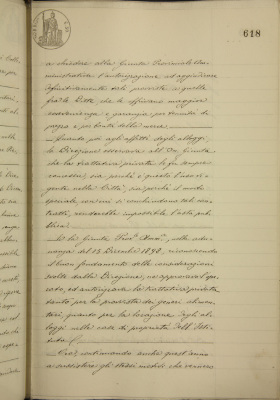 618
a chiedere alla Giunta Provinciale Am=
ministrativa l'autorizzazione ad aggiudicare
definitivamente dette provviste a quelle
fra le Ditte che le offrivano maggiore
convenienza e garanzia per bontà di
prezzo e per bontà della merce.
Quando poi agli affitti degli alloggi,
la Direzione osservava alla On. Giunta
che la trattativa privata fu sempre
consentita, sia perchè è questo l'uso vi=
gente nella Città, sia perchè il modo
speciale con cui si combindono tali con=
tratti, renderebbe impossibile l'asta pub=
blica.
La On. Giunta Prov. Amm., nella adu=
nanza del 13 Dicembre 1890, riconoscendo
il buon fondamento delle considerazioni
svolte dalla Direzione, ne approvava l'ope=
rato, ed autorizzava la trattativa privata
tanto per la provvista dei generi alimen=
tari, quanto per la locazione degli al=
loggi nelle case di proprietà dell'Isti=
tuto.
Ora, continuando anche quest'anno
a sussistere gli stessi motivi che vennero